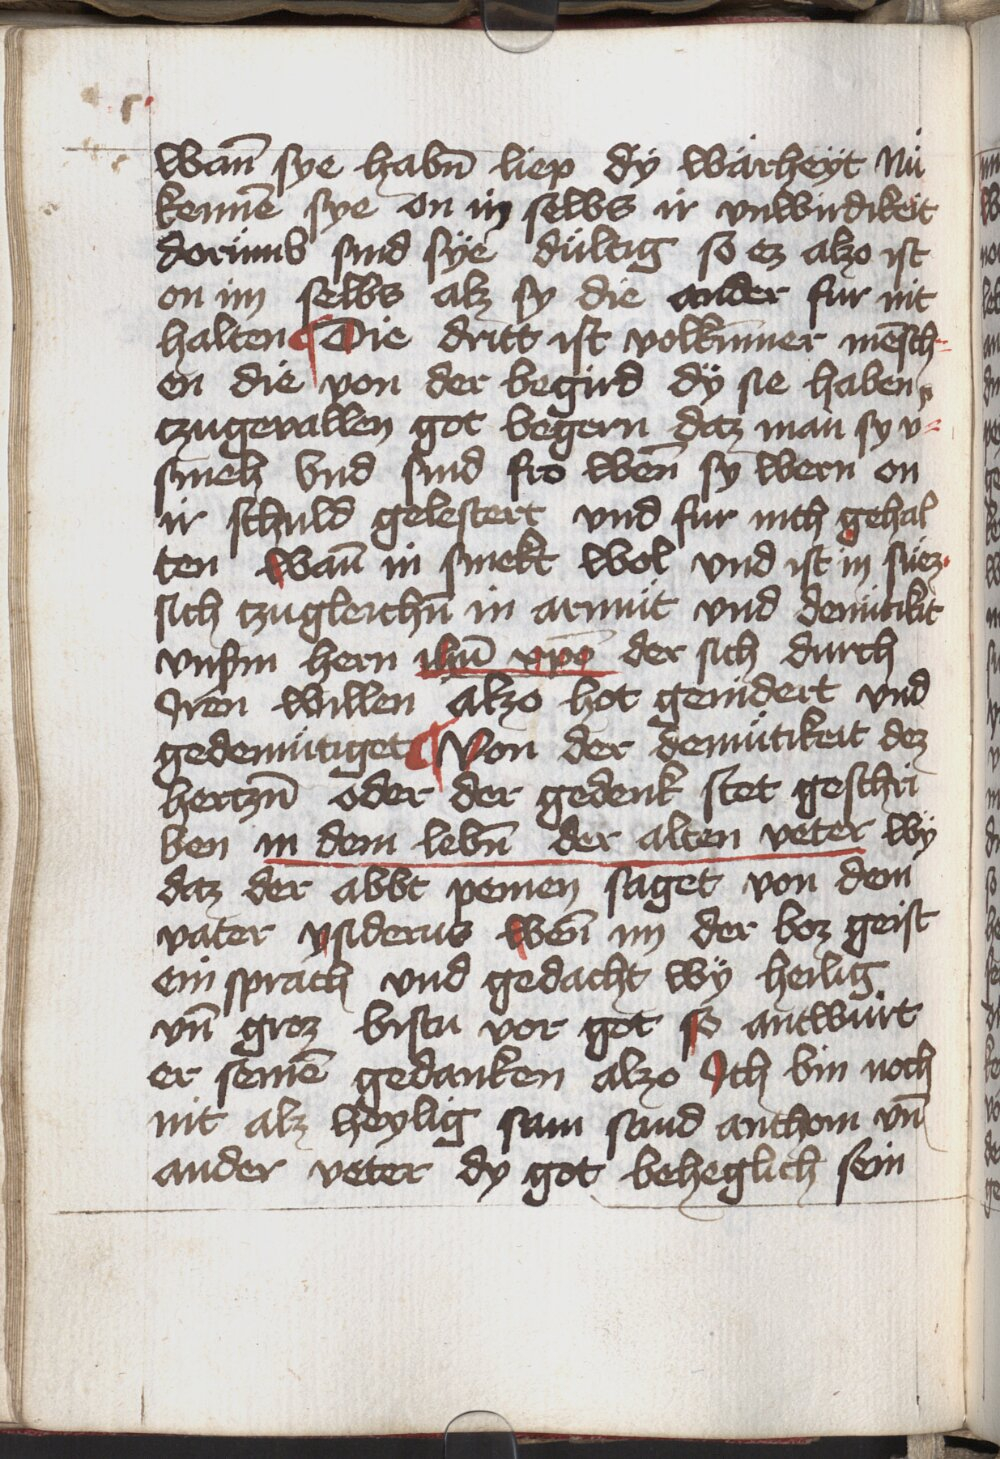 wan̄ sye habn̄ liep dÿ wârheÿt Nu
kennē sye on im selbs ir vnwirdikeit
dorumb sind sÿe dultig so ez alzo ist
on im selbs alz sy die ander fur nit
halten ¶ Die dritt ist volkumer mēsch-
en die von der begird dÿ sie haben
tzugevallen got begern daz man sy v-
smeh vnd sind fro wen̄ sy wern on
ir schuld gelestert vnd fur nich gehal
ten wan̄ in smekt wol vnd ist in suez
sich tzugleichn̄ in armut vnd demutikit
vnsm hern ihm̄ xpō der sich durch
Jren willen alzo hot genidert vnd
gedemutiget ¶ Von der demutikeit dez
hertzn̄ oder der gedenk stet geschri
ben in dem lebn̄ der alten veter wÿ
daz der abbt pemen saget von dem
vater ysiderus wen̄ im der boz geist
ein sprach vnd gedacht wÿ heilig
vn̄ groz bistu vor got so antwurt
er seinē gedanken alzo Jch bin noch
nit alz heylig sam sand anthom vn̄
ander veter dy got beheglich sein